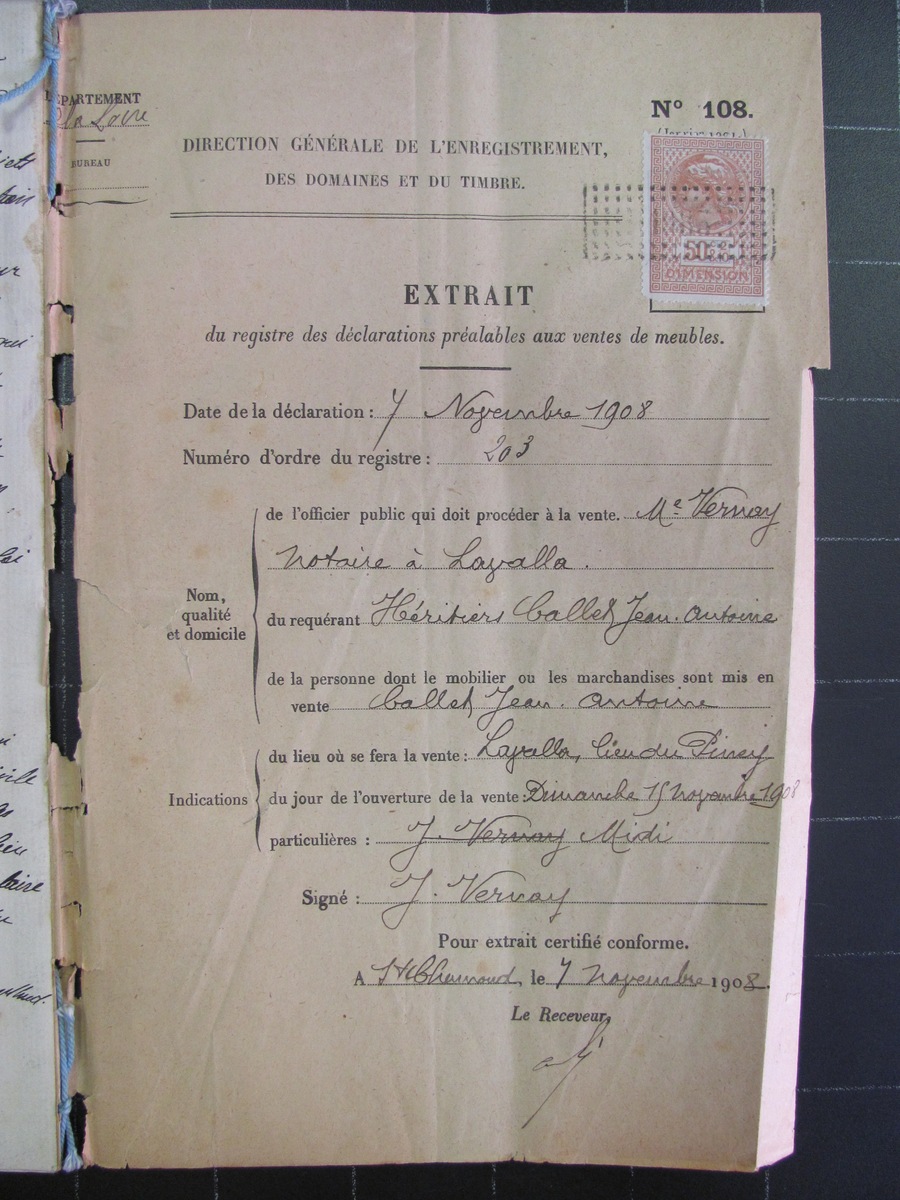 DÉPARTEMENT
la Loire
BUREAU
N° 108.
DIRECTION GÉNÉRALE DE L'ENREGISTREMENT,
DES DOMAINES ET DU TIMBRE.
50
DIMENSION
EXTRAIT
du registre des déclarations préalables aux ventes de meubles.
Date de la déclaration : 7 Novembre 1908
Numéro d'ordre du registre : 203
Nom, qualité et domicile
de l'officier public qui doit procéder à la vente. Me Vernay
notaire à Lavalla.
du requérant Héritiers Collet Jean-Antoine
de la personne dont le mobilier ou les marchandises sont mis en
vente Collet Jean-Antoine
Indications
du lieu où se fera la vente : Lavalla, lieu du
du jour de l'ouverture de la vente : Dimanche 15 Novembre 1908
particulières : J. Vernay Midi
Signé : J. Vernay
Pour extrait certifié conforme.
A St Chamond, le 7 novembre 1908.
Le Receveur,